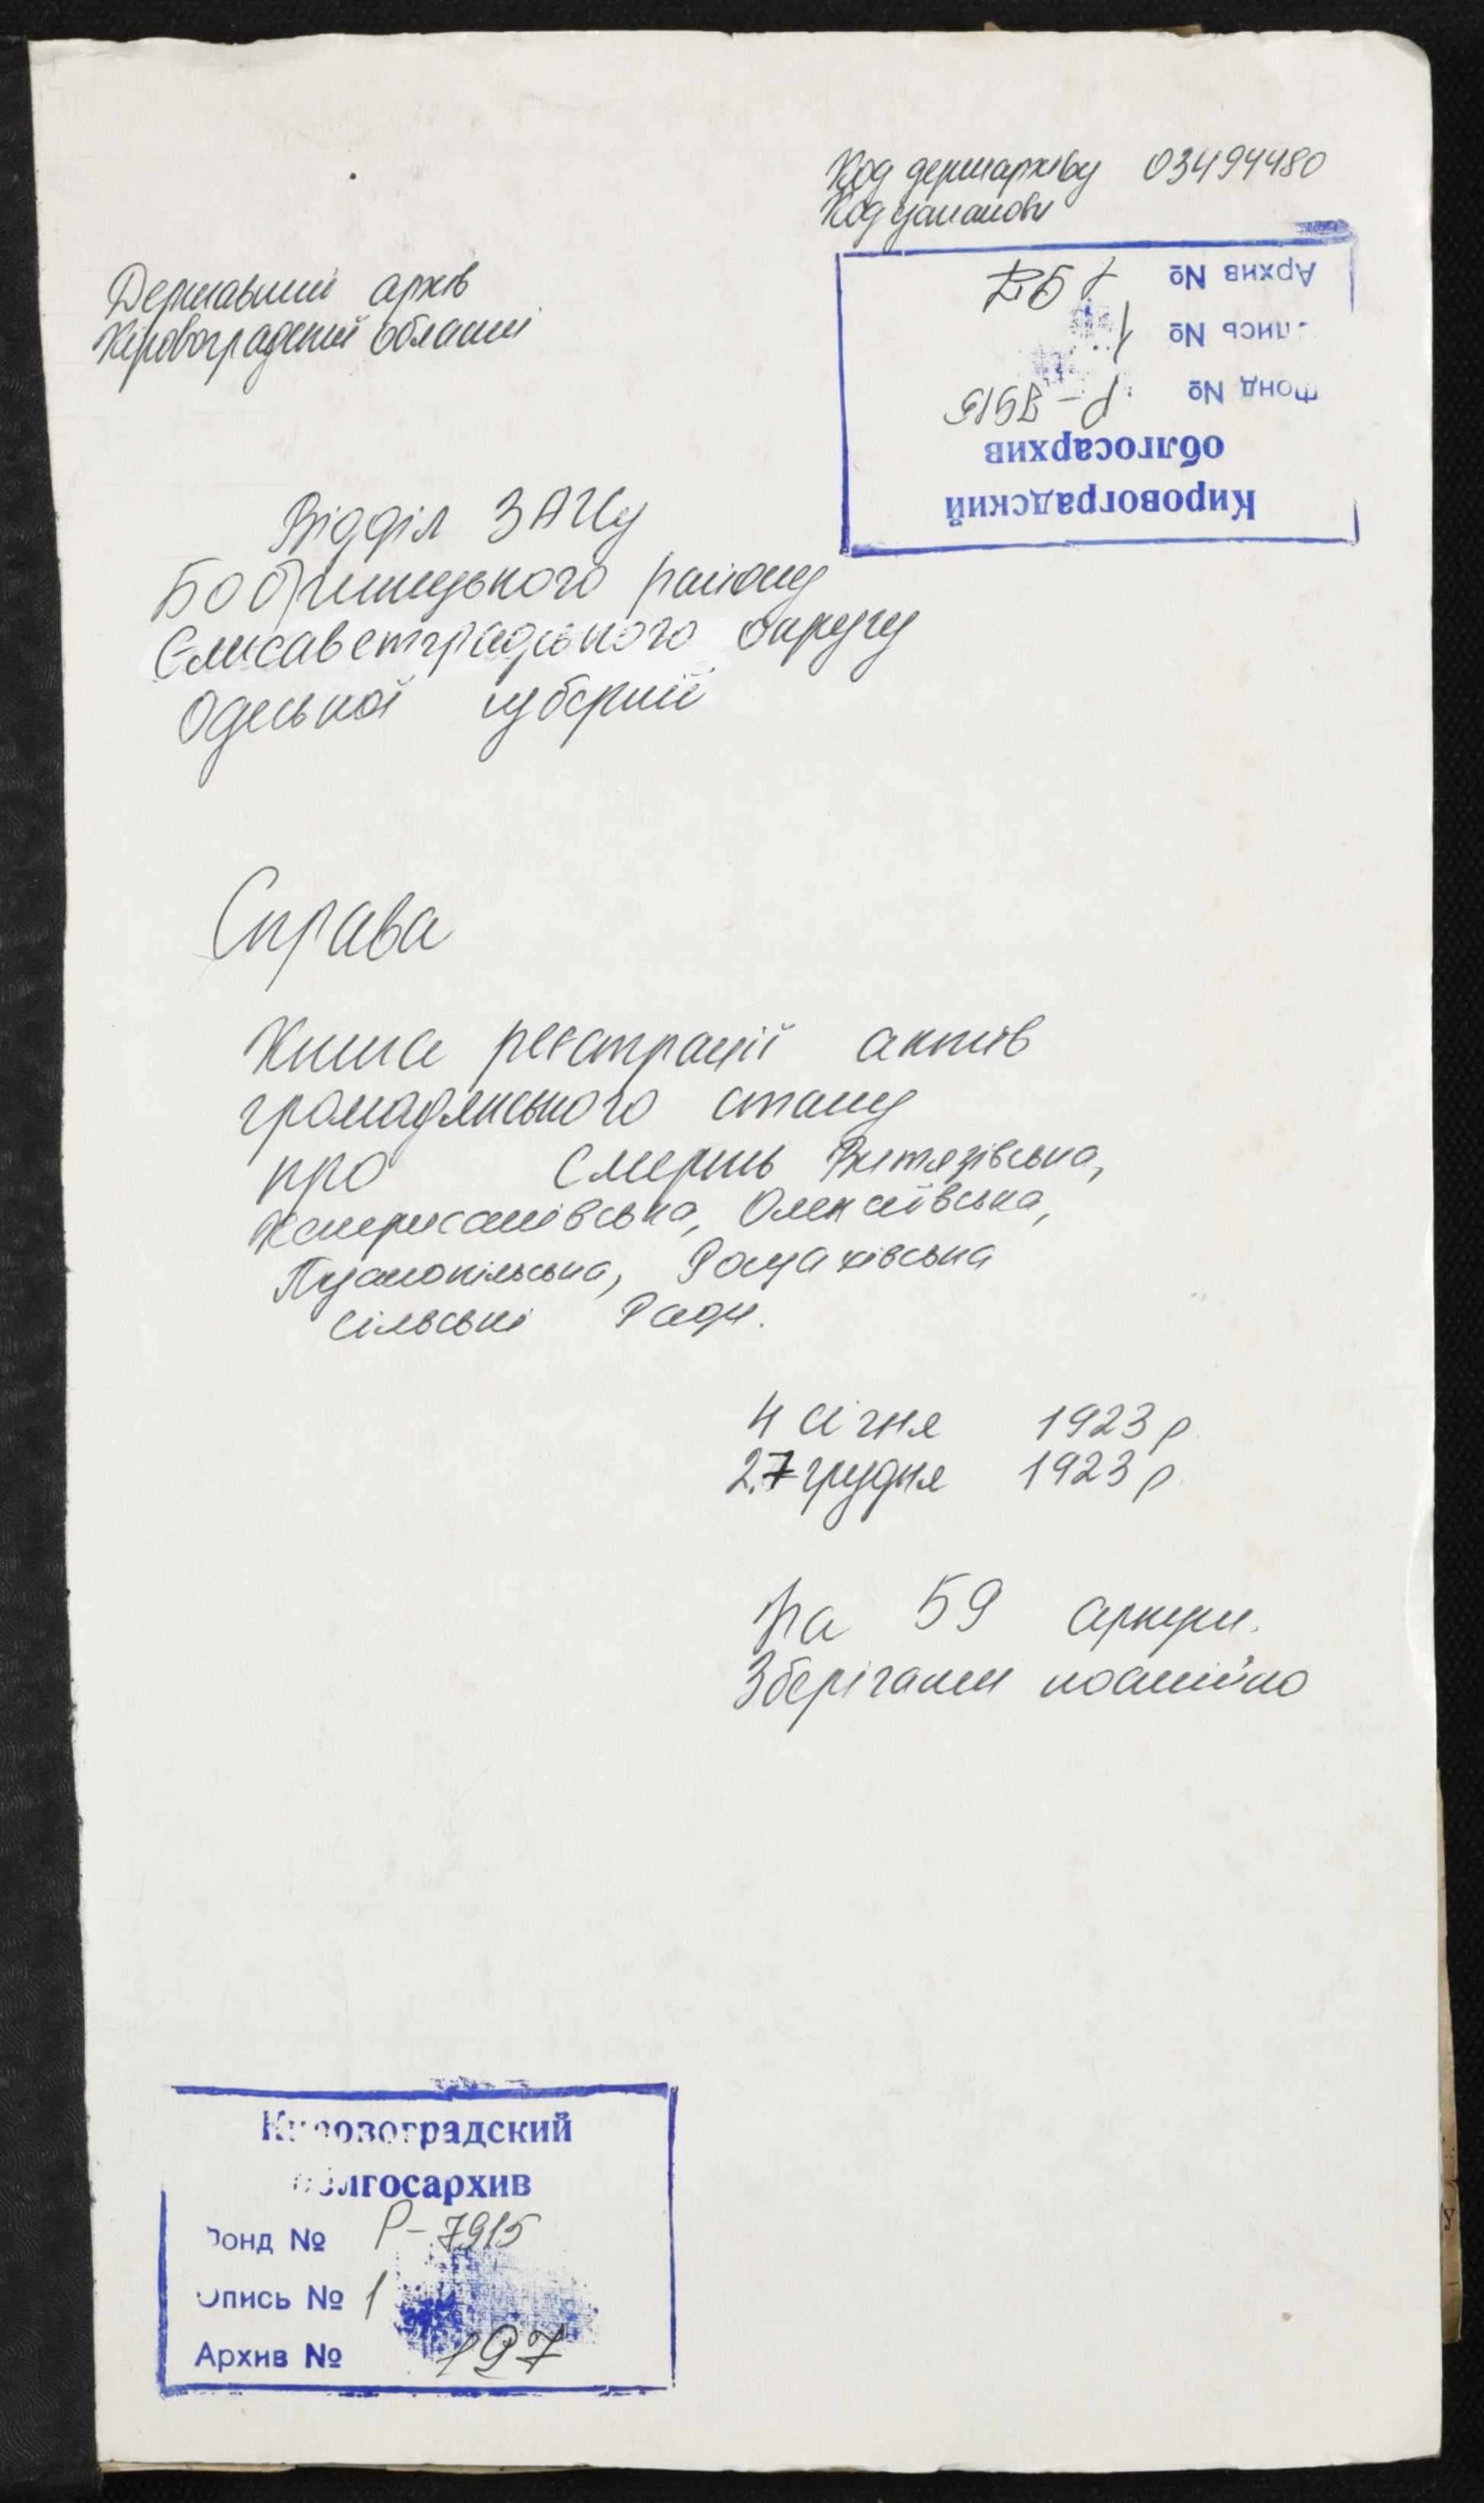 Код держархіву 03494480
Код установи
Кировоградский
облгосархив
Фонд № Р-7915
Опись № 1
Архив № 197
Державний архів
Кіровоградської області
Відділ ЗАГСу
Бобринецького району
Єлисаветградського округу
Одеської губернії
Справа
Книга реєстрації актів
громадянського стану
про смерть Витязівська,
Костянтинівська, Олексіївська,
сільські Ради.
4 січня 1923 р
27 грудня 1923 р
На 59 аркуш.
Зберігати постійно
Кировоградский
облгосархив
Фонд № Р-7915
Опись № 1
Архив № 197